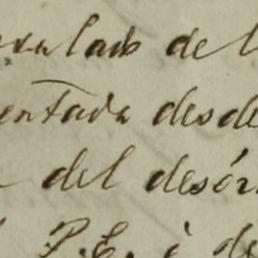 de l
entada desde
del desór
P.E. i de